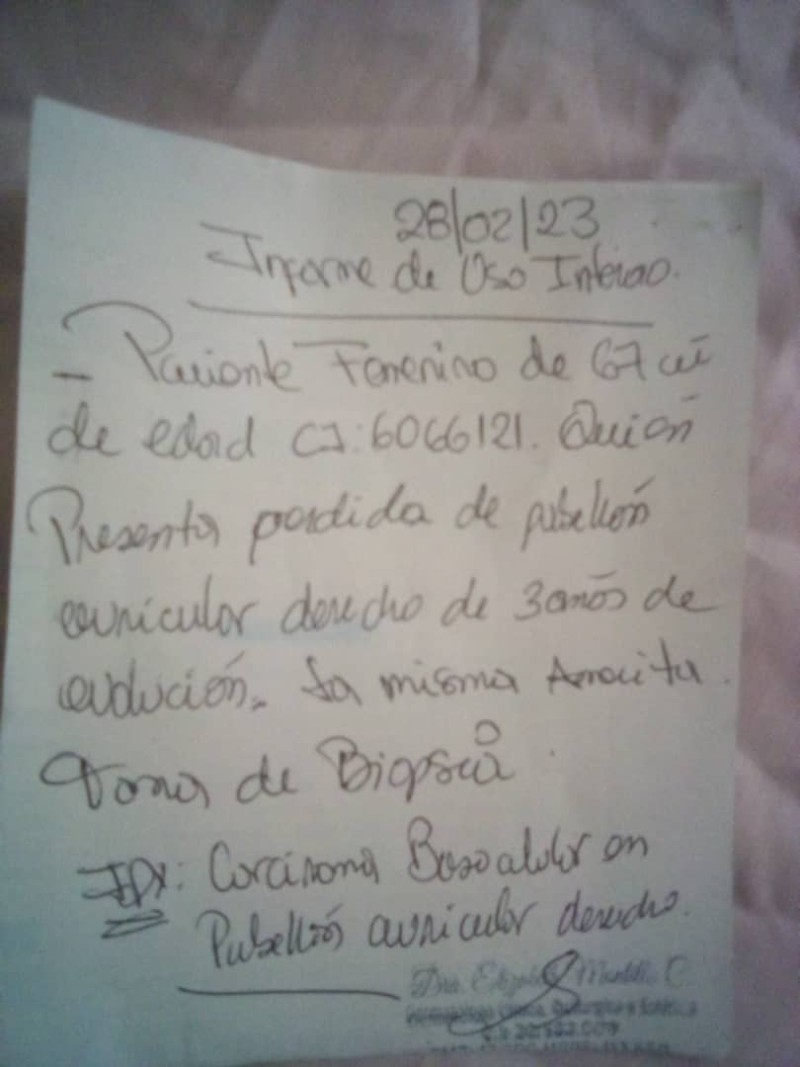 28/02/23
Informe de Uso Interno.
- Paciente Femenino de 67
de edad CI: 6066121. Quien
Presenta perdida de pabellón
auricular derecho de 3 años de
evolución. La misma Amerita
Toma de Biopsia.
IDX: Carcinoma Basocelular en
Pabellón auricular derecho.
Dra.